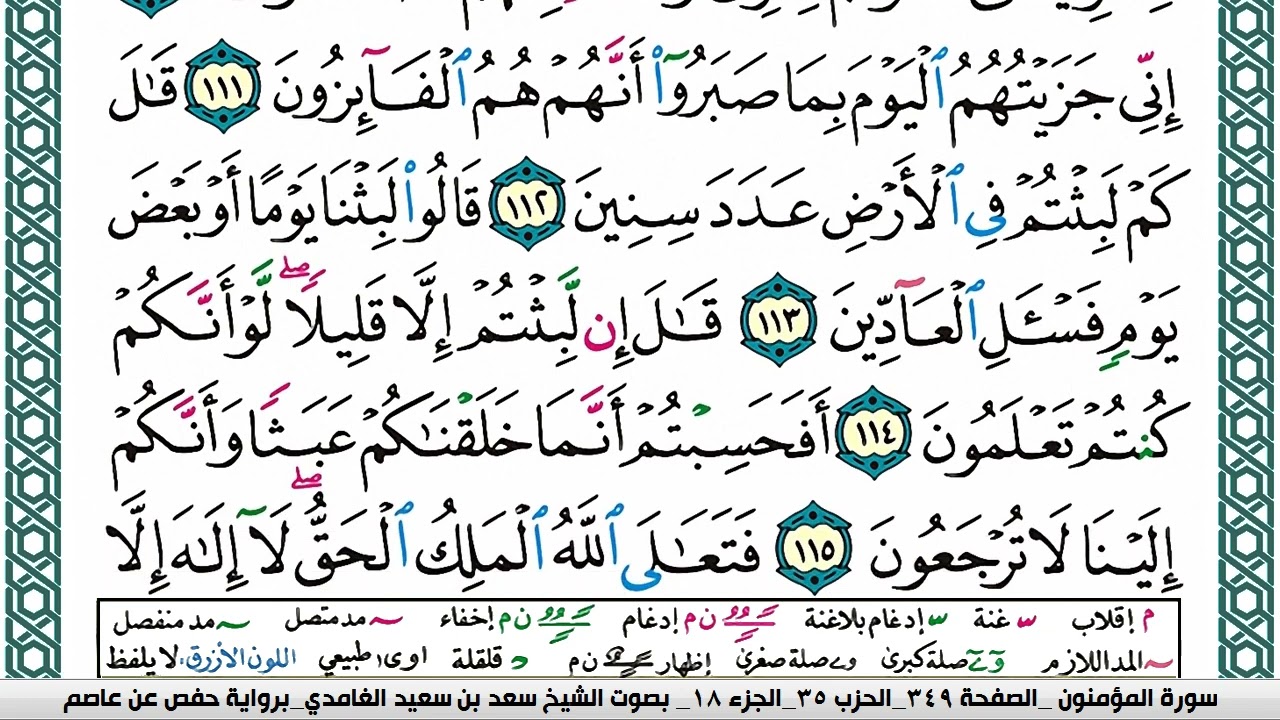 إِنِّي جَزَيْتُهُمُ ٱلْيَوْمَ بِمَا صَبَرُوٓا۟ أَنَّهُمْ هُمُ ٱلْفَآئِزُونَ ١١١ قَـٰلَ
كَمْ لَبِثْتُمْ فِى ٱلْأَرْضِ عَدَدَ سِنِينَ ١١٢ قَالُوا۟ لَبِثْنَا يَوْمًا أَوْ بَعْضَ
يَوْمٍ فَسْـَٔلِ ٱلْعَآدِّينَ ١١٣ قَـٰلَ إِن لَّبِثْتُمْ إِلَّا قَلِيلًا ۖ لَّوْ أَنَّكُمْ
كُنتُمْ تَعْلَمُونَ ١١٤ أَفَحَسِبْتُمْ أَنَّمَا خَلَقْنَـٰكُمْ عَبَثًا وَأَنَّكُمْ
إِلَيْنَا لَا تُرْجَعُونَ ١١٥ فَتَعَـٰلَى ٱللَّهُ ٱلْمَلِكُ ٱلْحَقُّ ۖ لَآ إِلَـٰهَ إِلَّا
م إقلاب س غنة س إدغام بلاغنة ن م إدغام ن م إخفاء ~ مد متصل ~ مد منفصل
~ المد اللازم و ے صلة كبرى و ے صلة صغرى إظهار ن م د قلقلة اوى ا طبيعي اللون الأزرق: لا يلفظ
سورة المؤمنون _الصفحة ٣٤٩_الحزب ٣٥_الجزء ١٨_ بصوت الشيخ سعد بن سعيد الغامدي_برواية حفص عن عاصم